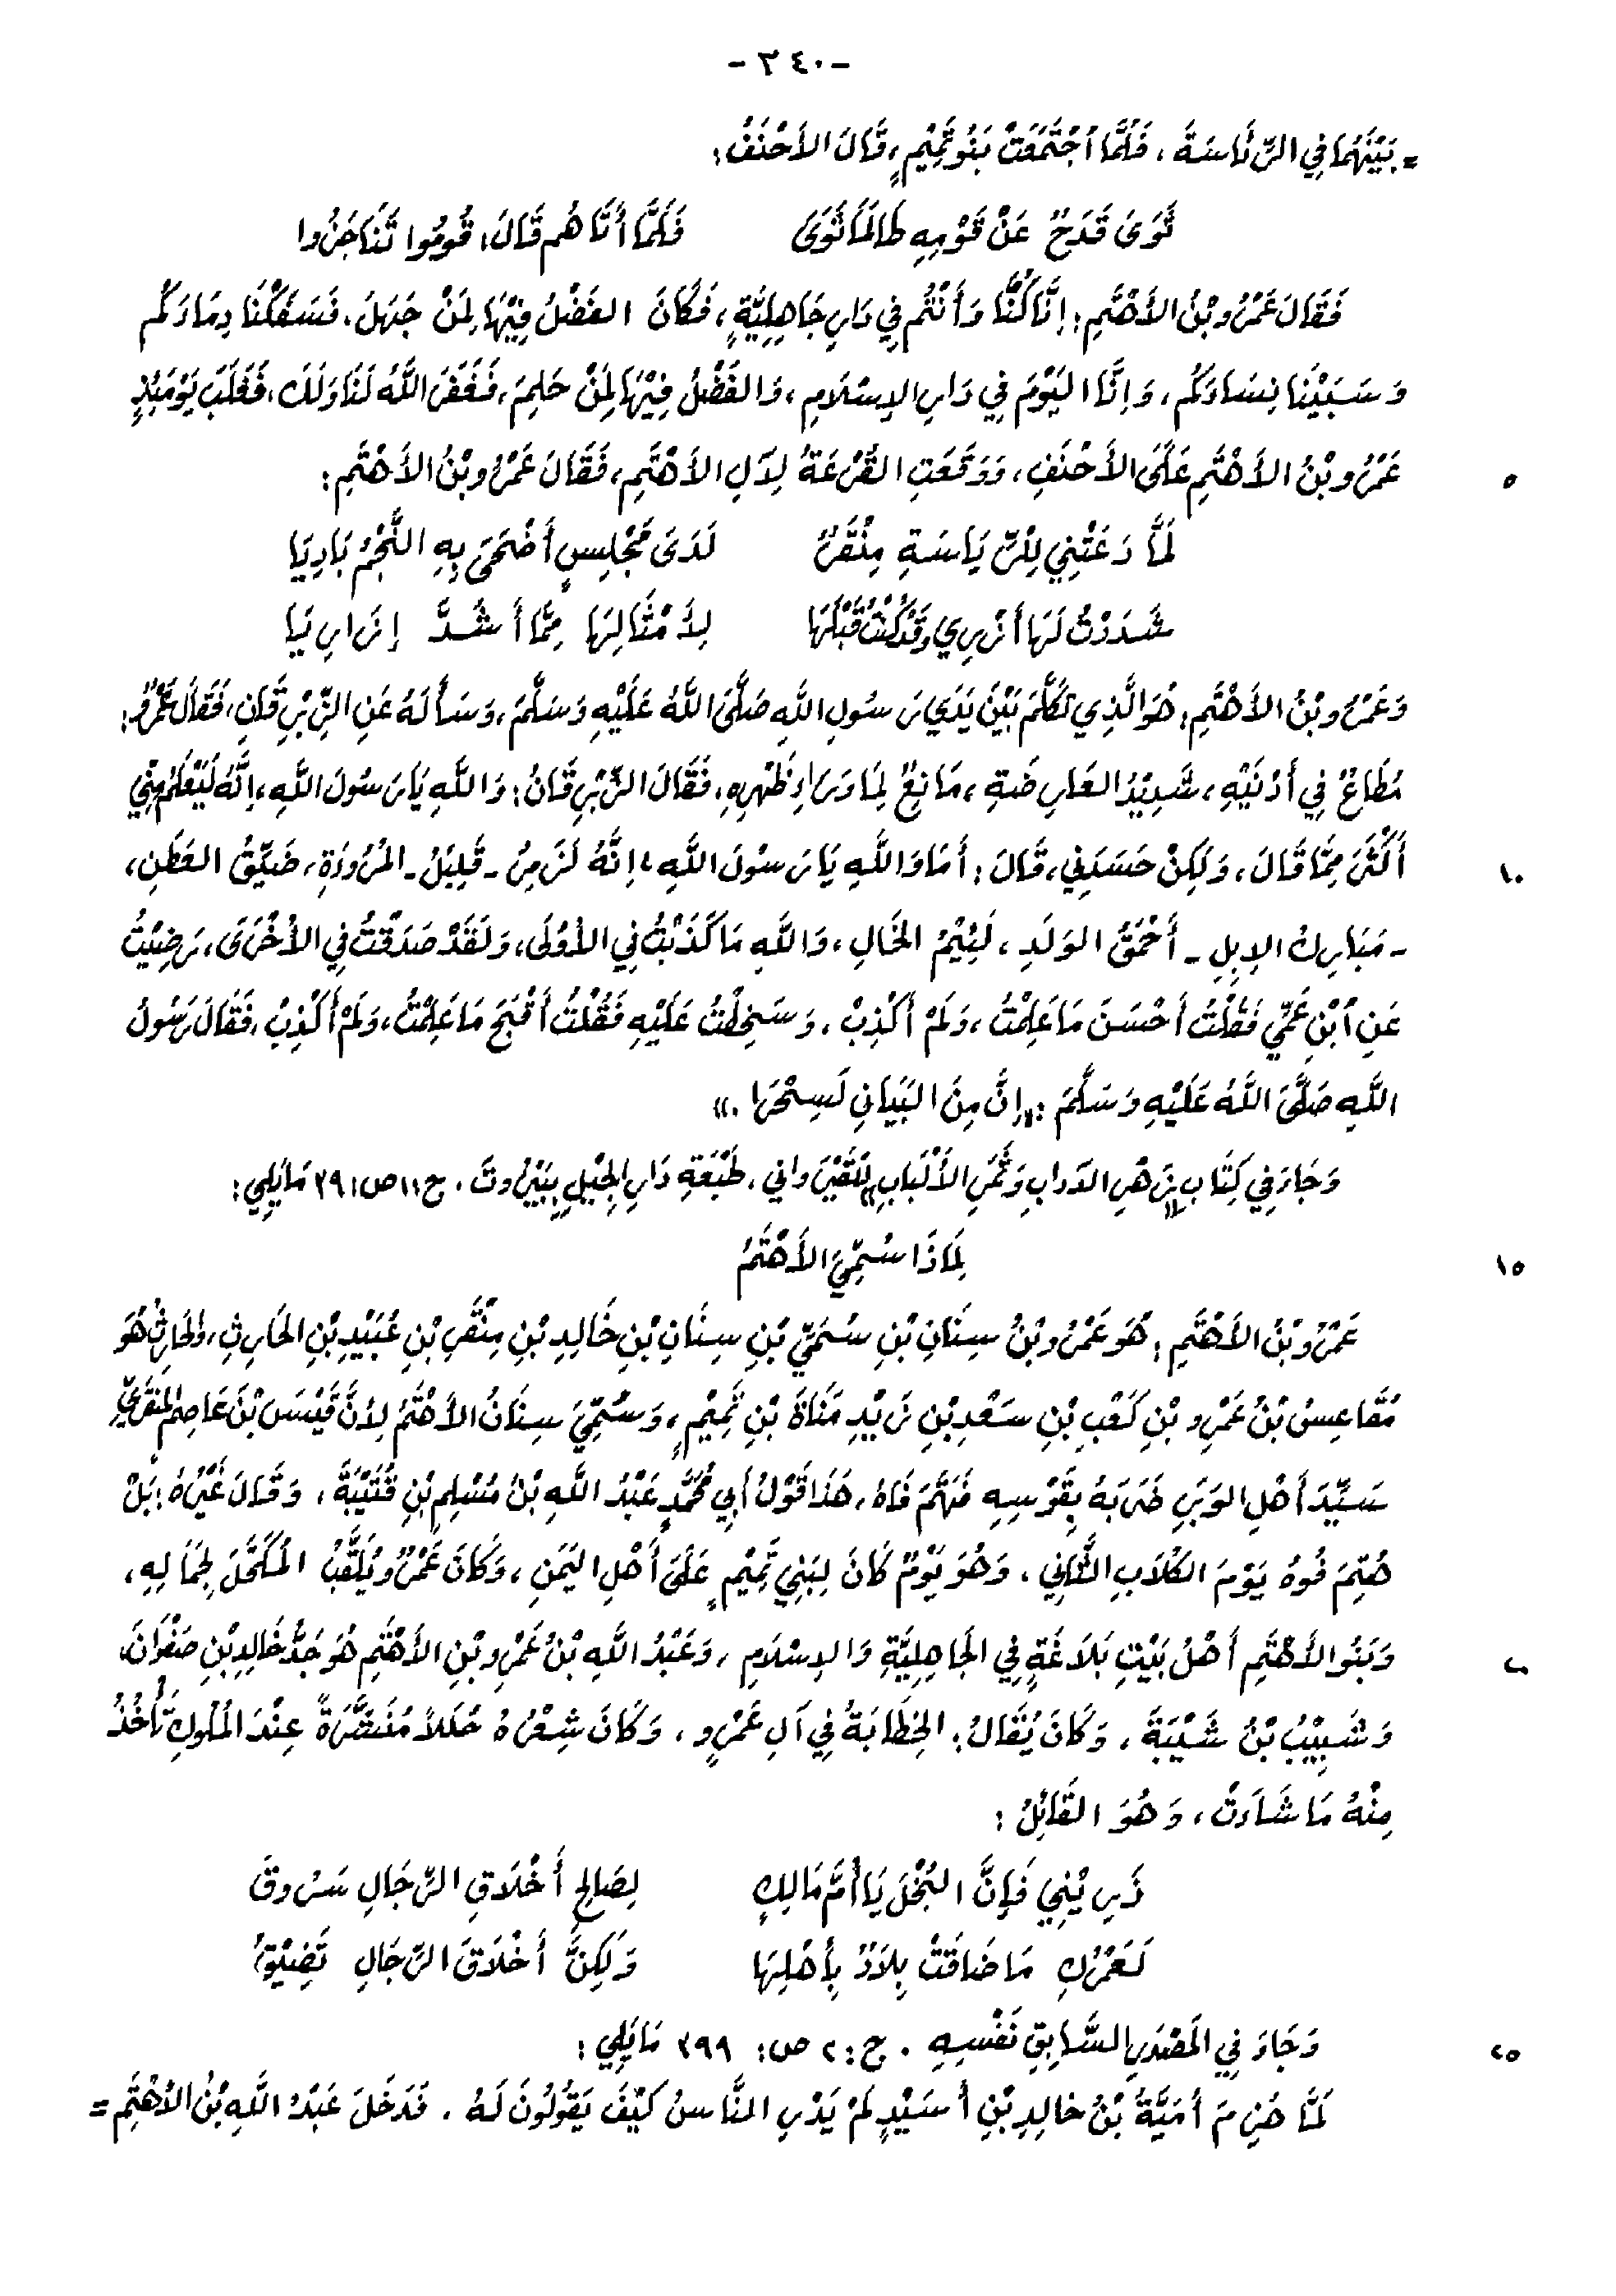 -٣٤٠-
= بَيْنَهُمَا فِي الرِّئَاسَةِ، فَلَمَّا اجْتَمَعَتْ بَنُو تَمِيْمٍ، قَالَ الأَحْنَفُ:
ثَوَى قَدَحٌ عَنْ قَوْمِهِ طَالَمَا ثَوَى فَلَمَّا أَتَاهُم قَالَ: قُومُوا تَنَاجَزُوا
فَقَالَ عَمْرُو بْنُ الأَهْتَمِ: إِنَّا كُنَّا وَأَنْتُم فِي دَارِ جَاهِلِيَّةٍ، فَكَانَ الفَضْلُ فِيْهَا لِمَنْ جَهِلَ، فَسَفَكْنَا دِمَاءَكُم
وَسَبَيْنَا نِسَاءَكُم، وَإِنَّا اليَوْمَ فِي دَارِ الإِسْلَامِ، وَالفَضْلُ فِيْهَا لِمَنْ حَلِمَ، فَغَفَرَ اللَّهُ لَنَا وَلَكَ، فَغَلَبَ يَوْمَئِذٍ
عَمْرُو بْنُ الأَهْتَمِ عَلَى الأَحْنَفِ، وَوَقَعَتِ القُرْعَةُ لِآلِ الأَهْتَمِ، فَقَالَ عَمْرُو بْنُ الأَهْتَمِ: ٥
لَمَّا دَعَتْنِي لِلرِّيَاسَةِ مِنْقَرٌ لَدَى مَجْلِسٍ أَضْحَى بِهِ النَّجْمُ بَادِيَا
شَدَدْتُ لَهَا أَزْرِي وَقَدْ كُنْتُ قَبْلَهَا لِأَمْثَالِهَا مِمَّا أَشُدَّ إِزَارِيَا
وَعَمْرُو بْنُ الأَهْتَمِ: هُوَ الَّذِي تَكَلَّمَ بَيْنَ يَدَي رَسُولِ اللَّهِ صَلَّى اللَّهُ عَلَيْهِ وَسَلَّمَ، وَسَأَلَهُ عَنِ الزِّبْرِقَانِ، فَقَالَ عَمْرٌو:
مُطَاعٌ فِي أَدْنَيْهِ، شَدِيْدُ العَارِضَةِ، مَانِعٌ لِمَا وَرَاءِ ظَهْرِهِ، فَقَالَ الزِّبْرِقَانُ: وَاللَّهِ يَا رَسُولَ اللَّهِ، إِنَّهُ لَيَعْلَمُ مِنِّي
أَكْثَرَ مِمَّا قَالَ، وَلَكِنْ حَسَدَنِي، قَالَ: أَمَا وَاللَّهِ يَا رَسُولَ اللَّهِ، إِنَّهُ لَزَمِرُ - قَلِيْلُ - المُرُوءَةِ، ضَيِّقُ العَطَنِ، ١٠
- مَبَارِكُ الإِبِلِ - أَحْمَقُ الوَلَدِ، لَئِيْمُ الخَالِ، وَاللَّهِ مَا كَذَبْتُ فِي الأُوْلَى، وَلَقَدْ صَدَقْتُ فِي الأُخْرَى، رَضِيْتُ
عَنِ ابْنِ عَمِّي فَقُلْتُ أَحْسَنَ مَا عَلِمْتُ، وَلَمْ أَكْذِبْ، وَسَخِطْتُ عَلَيْهِ فَقُلْتُ أَقْبَحَ مَا عَلِمْتُ، وَلَمْ أَكْذِبْ، فَقَالَ رَسُولُ
اللَّهِ صَلَّى اللَّهُ عَلَيْهِ وَسَلَّمَ: «إِنَّ مِنَ البَيَانِ لَسِحْرَا.»
وَجَاءَ فِي كِتَابِ «زَهْرِ الآدَابِ وَثَمَرِ الأَلْبَابِ» لِلقَيْرَوانِي. طَبْعَةِ دَارِ الجِيْلِ بِبَيْرُوتَ. ج١١ ص٣٩١ مَا يَلِي:
لِمَاذَا سُمِّيَ الأَهْتَمُ ١٥
عَمْرُو بْنُ الأَهْتَمِ: هُوَ عَمْرُو بْنُ سِنَانِ بْنِ سُمَيِّ بْنِ سِنَانِ بْنِ خَالِدِ بْنِ مِنْقَرِ بْنِ عُبَيْدِ بْنِ الحَارِثِ، وَالحَارِثُ هُوَ
مُقَاعِسُ بْنُ عَمْرِو بْنِ كَعْبِ بْنِ سَعْدِ بْنِ زَيْدِ مَنَاةَ بْنِ تَمِيْمٍ، وَسُمِّيَ سِنَانُ الأَهْتَمُ لِأَنَّ قَيْسَ بْنَ عَاصِمٍ المِنْقَرِيَّ
سَيِّدَ أَهْلِ الوَبَرِ ضَرَبَهُ بِقَوْسِهِ فَهَتَمَ فَاهُ، هَذَا قَوْلُ أَبِي مُحَمَّدٍ عَبْدُ اللَّهِ بْنُ مُسْلِمِ بْنِ قُتَيْبَةَ، وَقَالَ غَيْرُهُ: بَلْ
هُتِمَ فُوهُ يَوْمَ الكُلَابِ الثَّانِي، وَهُوَ يَوْمٌ كَانَ لِبَنِي تَمِيْمٍ عَلَى أَهْلِ اليَمَنِ، وَكَانَ عَمْرٌو يُلَقَّبُ المُكَحَّلَ لِجَمَالِهِ،
وَبَنُو الأَهْتَمِ أَهْلُ بَيْتِ بَلَاغَةٍ فِي الجَاهِلِيَّةِ وَالإِسْلَامِ، وَعَبْدُ اللَّهِ بْنُ عَمْرِو بْنِ الأَهْتَمِ هُوَ جَدُّ خَالِدِ بْنِ صَفْوَانَ ٢٠
وَشَبِيْبُ بْنُ شَيْبَةَ، وَكَانَ يُقَالُ: الخِطَابَةُ فِي آلِ عَمْرٍو، وَكَانَ شِعْرُهُ حُلَلاً مُنَشَّرَةً عِنْدَ المُلُوكِ تَأْخُذُ
مِنْهُ مَا شَاءَتْ، وَهُوَ القَائِلُ:
ذَرِيْنِي فَإِنَّ البُخْلَ يَا أُمَّ مَالِكٍ لِصَالِحِ أَخْلَاقِ الرِّجَالِ سَرُوقَ
لَعَمْرُكِ مَا ضَاقَتْ بِلَادٌ بِأَهْلِهَا وَلَكِنَّ أَخْلَاقَ الرِّجَالِ تَضِيْقُ
وَجَاءَ فِي المَصْدَرِ السَّابِقِ نَفْسِهِ. ج: ٢ ص: ٣٩٩ مَا يَلِي: ٢٥
لَمَّا هُزِمَ أُمَيَّةُ بْنُ خَالِدِ بْنِ أُسَيْدٍ لَمْ يَدْرِ النَّاسُ كَيْفَ يَقُولُونَ لَهُ. فَدَخَلَ عَبْدُ اللَّهِ بْنُ الأَهْتَمِ =